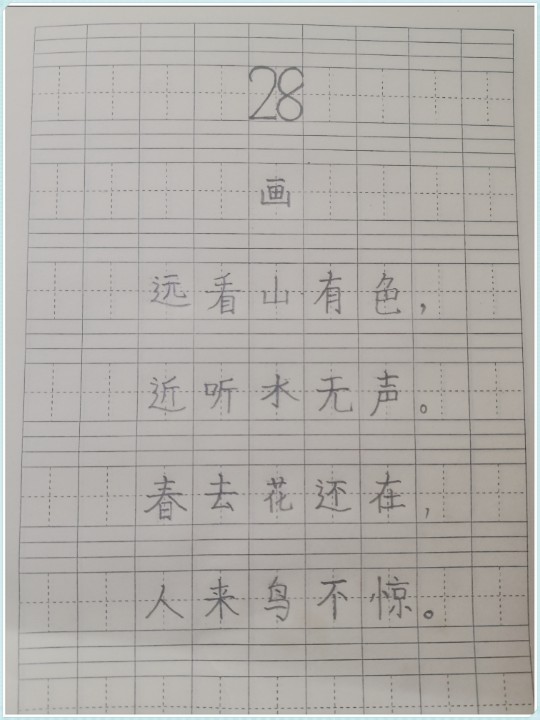 28
画
远看山有色，
近听水无声。
春去花还在，
人来鸟不惊。